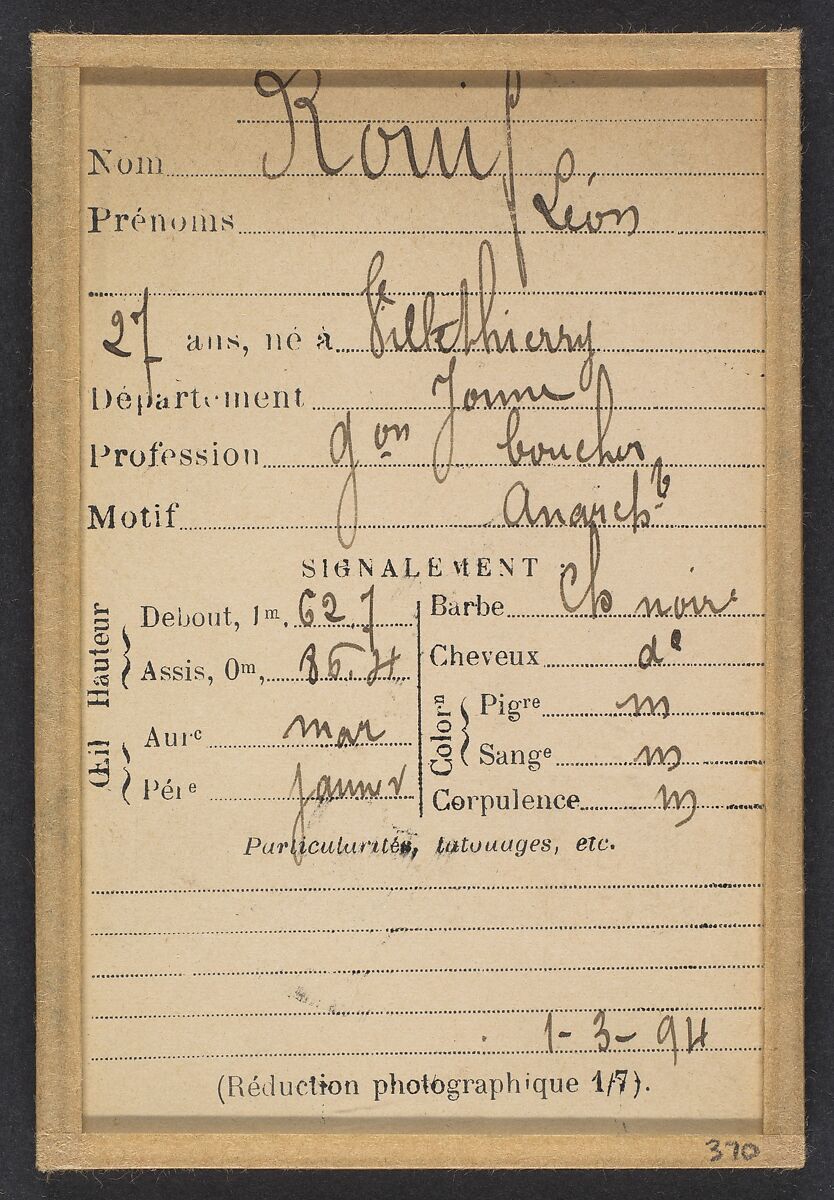 Nom Rouif
Prénoms Léon
27 ans, né à Villethierry
Département Yonne
Profession gon boucher
Motif Anarch
SIGNALEMENT
Hauteur
Debout, 1m, 62.7
Assis, 0m, 86.4
Œil
Aure mar
Pére jaune v
Barbe Ch noir
Cheveux de
Colorn
Pigre m
Sange m
Corpulence m
Particularités, tatouages, etc.
1-3-94
(Réduction photographique 1/7).
370